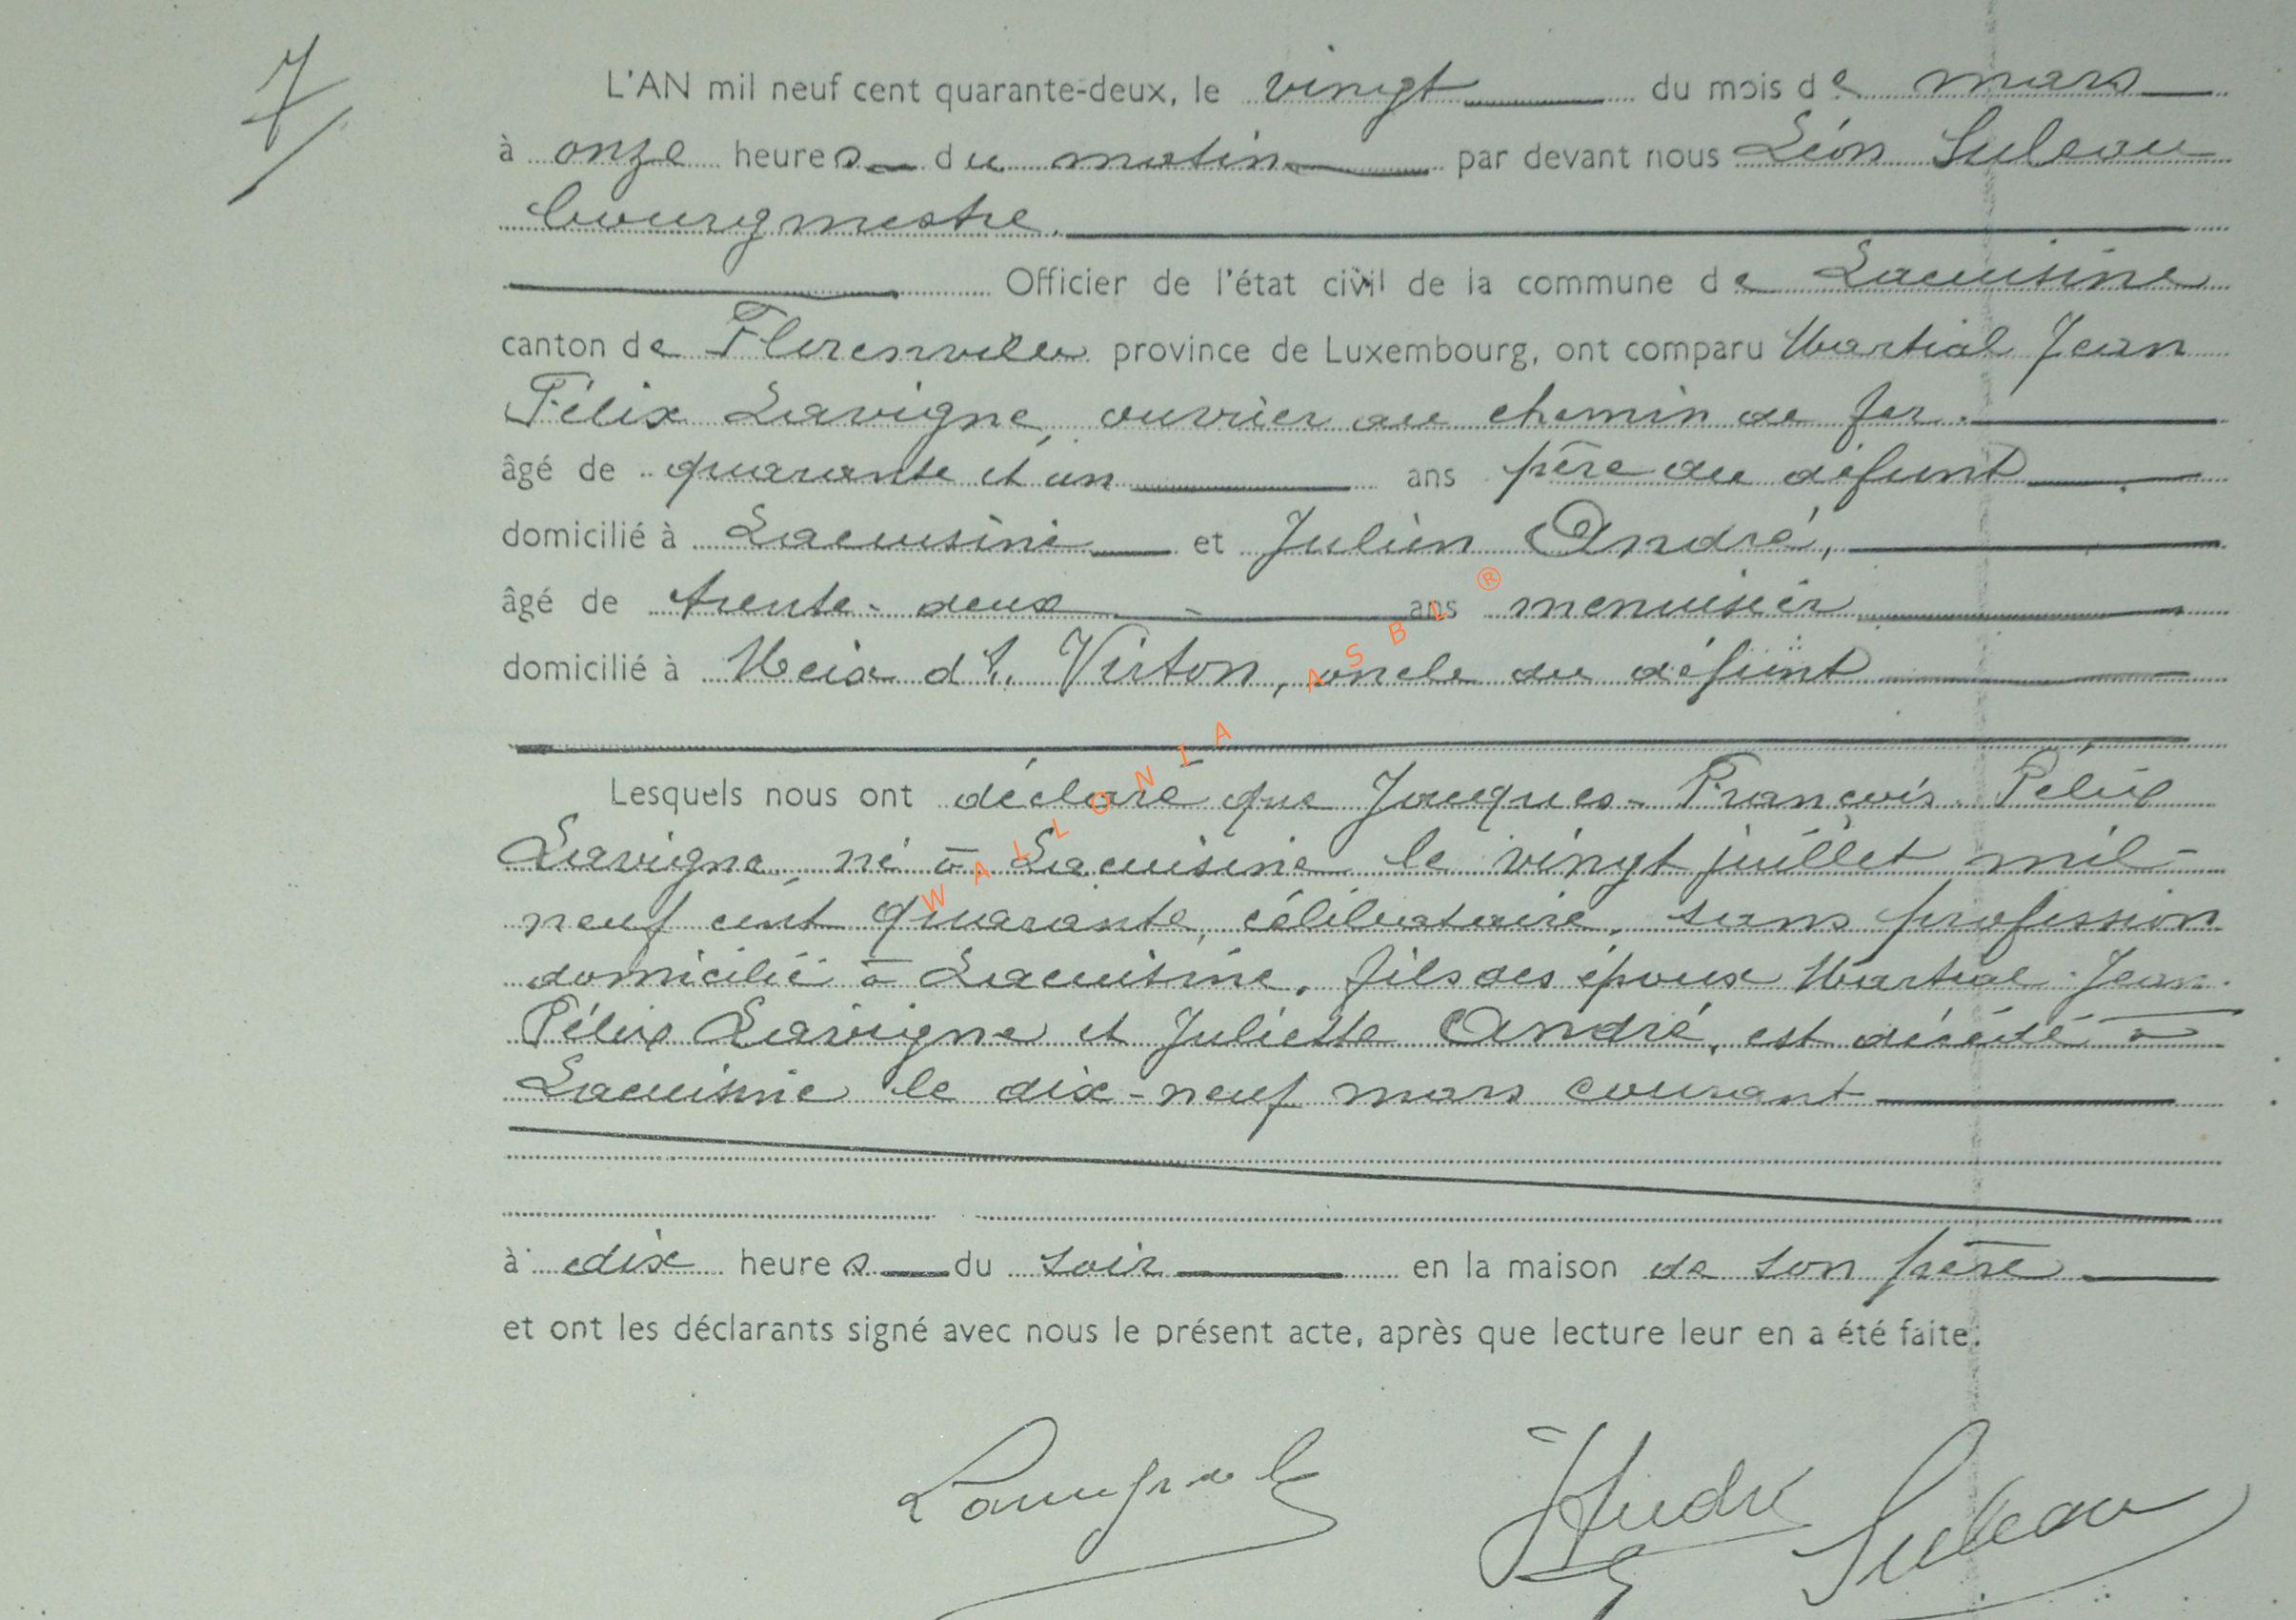 7
L'AN mil neuf cent quarante-deux, le vingt du mois de mars
à onze heures du matin par devant nous Léon Suleau
bourgmestre.
Officier de l'état civil de la commune de Lacuisine
canton de Florenville province de Luxembourg, ont comparu Martial Jean
Félix Lavigne, ouvrier au chemin de fer.
âgé de quarante et un ans père du défunt
domicilié à Lacuisine et Julien André,
âgé de trente-deux ans menuisier
domicilié à Meix dt. Virton, oncle du défunt
Lesquels nous ont déclaré que Jacques-François Félix
Lavigne né à Lacuisine le vingt juillet mil-
neuf cent quarante, célibataire, sans profession
domicilié à Lacuisine, fils des époux Martial Jean
Félix Lavigne et Juliette André, est décédé à
Lacuisine le dix-neuf mars courant
à dix heures du soir en la maison de son père
et ont les déclarants signé avec nous le présent acte, après que lecture leur en a été faite.
JAndré Suleau
WALLONIA ASBL ®